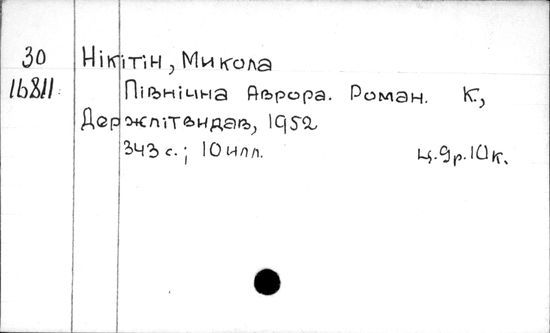 30 Нікітін, Микола
16811 Північна Аврора. Роман. К.,
Держлітвидав, 1952
343 с.; 10 илл. ц. 9р. 10к.